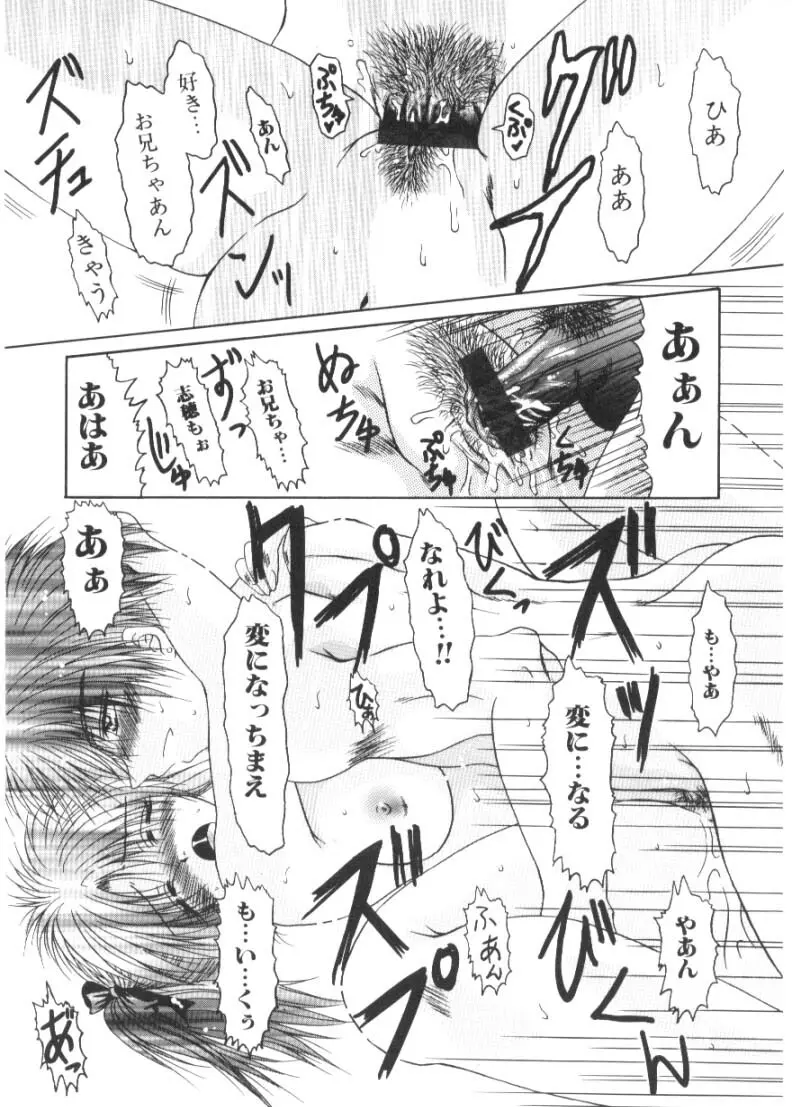 ひあ
ああ
グプ
くぷ♥
ぷちゅ♥
あん
好き…
お兄ちゃあん
ズンッ
ズチュ
きゃう
あぁん
くちゅ
ぷちゅ
ぬちゅ
お兄ちゃ…
志穂もぉ
ずっ
じゅ
あはあ
も…やあ
ズプ
びくっ
なれよ…!!
変になっちまえ
クプ
ひあ
あぁ
変に…なる
やあん
びくん
ふあん
ズプ
も…い…くぅ
あっ